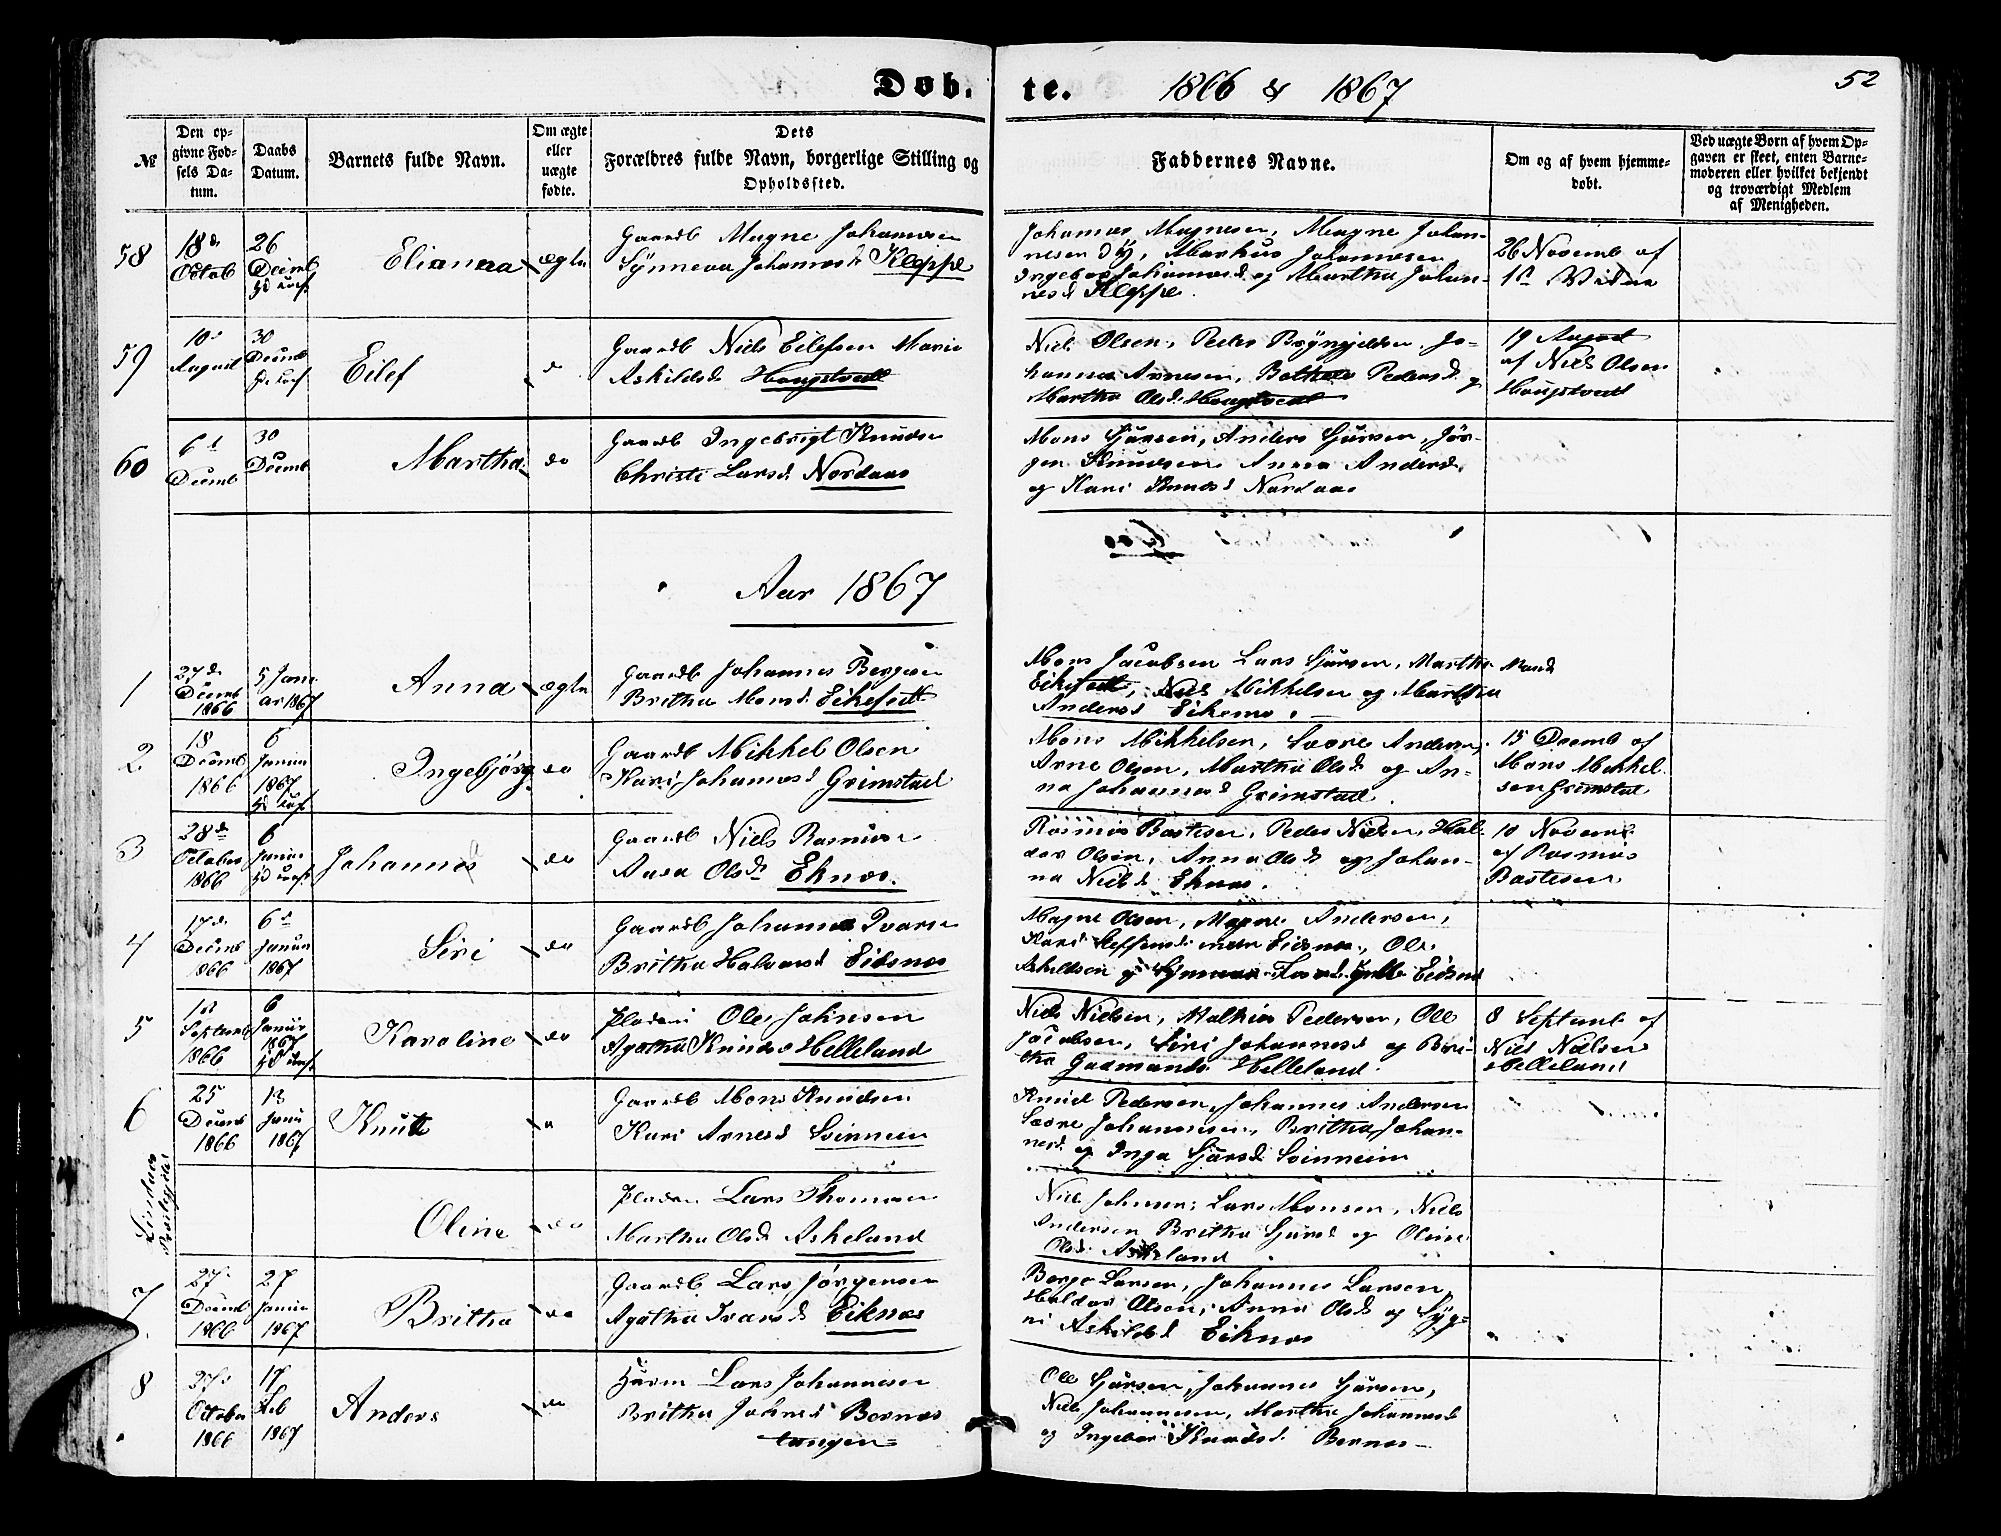 Døb- te. 1866 & 1867 52
№
Den op-
givne Fød-
sels Da-
tum.
Daabs
Datum.
Barnets fulde Navn.
Om ægte
eller
uægte
fødte.
Dets
Forældres fulde Navn, borgerlige Stilling og
Opholdssted.
Faddernes Navne.
Om og af hvem hjemme-
døbt.
Ved uægte Børn af hvem Op-
gaven er skeet, enten Barne-
moderen eller hvilket bekjendt
og troværdigt Medlem
af Menigheden.
58
18de
Octob
26
Decmb
Elianna
ægte
Gaardb Magne Johannesen
Synneva Johannesd Kleppe
Johannes Magnesen, Magne Johan-
nesen Dy, Markus Johannesen
Ingebor Johannesd og Martha Johan-
nesd Kleppe.
26 Novemb af
59
10de
August
30
Decemb
Eilef
do
Gaardb Niels Eilefsen Marie
Askildsd Hougstvedt
Niels Olsen, Peder Bryngjeldsen, Jo-
hannes Arnesen, Bothele Pedersd og
Martha Olsd Hougstvedt
19 August
af Niels Olsen
Hougstvedt
60
6d
Decmb
30
Decmb
Martha
do
Gaardb Ingebrigt Knudsen
Christi Larsd Nordaas
Mons Sjursen, Anders Sjursen, Jør-
gen Knudsen Anna Andersd
og Kari Knudsd Nordaas
Aar 1867
1
27de
Decmb
1866
5 Janu
ar 1867
Anna
ægte
Gaardb Johannes Børgesen
Britha Monsd Eikefedt
Mons Jacobsen Lars Sjursen, Martha Mand
Eikefedt, Niels Mikkelsen og Martha
Andersd Eikemo.
2
Decmb
1866
6
Januar
1867
Ingebjørg
do
Gaardb Mikkel Olsen
Kari Johannesd Grimstad
Mons Mikkelsen, Sævre Andersen,
Arne Olsen, Martha Olsd og An-
na Johannesd Grimstad.
15 Decmb af
Mons Mikkel
sen Grimstad
3
28de
October
1866
6
Januar
Johannes
do
Gaardb Niels Rasmusen
Anna Olsd Eknæs.
Rasmus Bastesen, Peder Nielsen, Hal-
dor Olsen, Anna Olsd og Johan-
na Nielsd Eknæs.
10 Novemb
af Rasmus
Bastesen
4
17de
Decmb
1866
6d
Januar
1867
Siri
do
Gaardb Johannes Ivarsen
Britha Halvorsd Eidsnes
Magne Olsen, Magne Andersen,
Kari Steffensd Eidsnes, Ole
Askildsen og
5
1st
Septemb
1866
6
Januar
1867
Karoline
do
Pladsm Ole Johnsen
Agatha Knudsd Helleland
Niels Nielsen, Mathias Pedersen, Ole
Jacobsen, Siri Johannesd og Bri-
tha Gudmunds Helleland.
8 Septemb af
Niels Nielsen
Helleland
6
25
Decmb
1866
13
Janu
1867
Knut
Gaardb Mons Knudsen
Kari Arnesd Svinneim
Knud Pedersen, Johannes Andersen
Sævre Johannesen, Britha Johan-
nesd og Inga Sjursd Svinneim
Lindaas
Præstegjeld
Oline
do
Pladsm Lars Thomasen
Martha Olsd Askeland
Niels Johnsen, Lars Monsen, Niels
Andersen Britha Sjursd og Oline
Olsd. Askeland
7
27de
Decmb
1866
27
Januar
1867
Britha
do
Gaardb Lars Jørgensen
Agatha Ivarsd Eiknæs
Børge Larsen, Johannes Larsen,
Haldor Olsen, Anna Olsd og Syg-
ni Askildsd Eiknæs
8
27de
October
1866
17
Feb
1867
Anders
do
Huusm Lars Johannesen
Britha Johnsd Bernæs
tangen
Ole Sjursen, Johannes Sjursen,
Niels Johannesen, Martha Johannesd
og Ingebor Knudsd. Bernæs